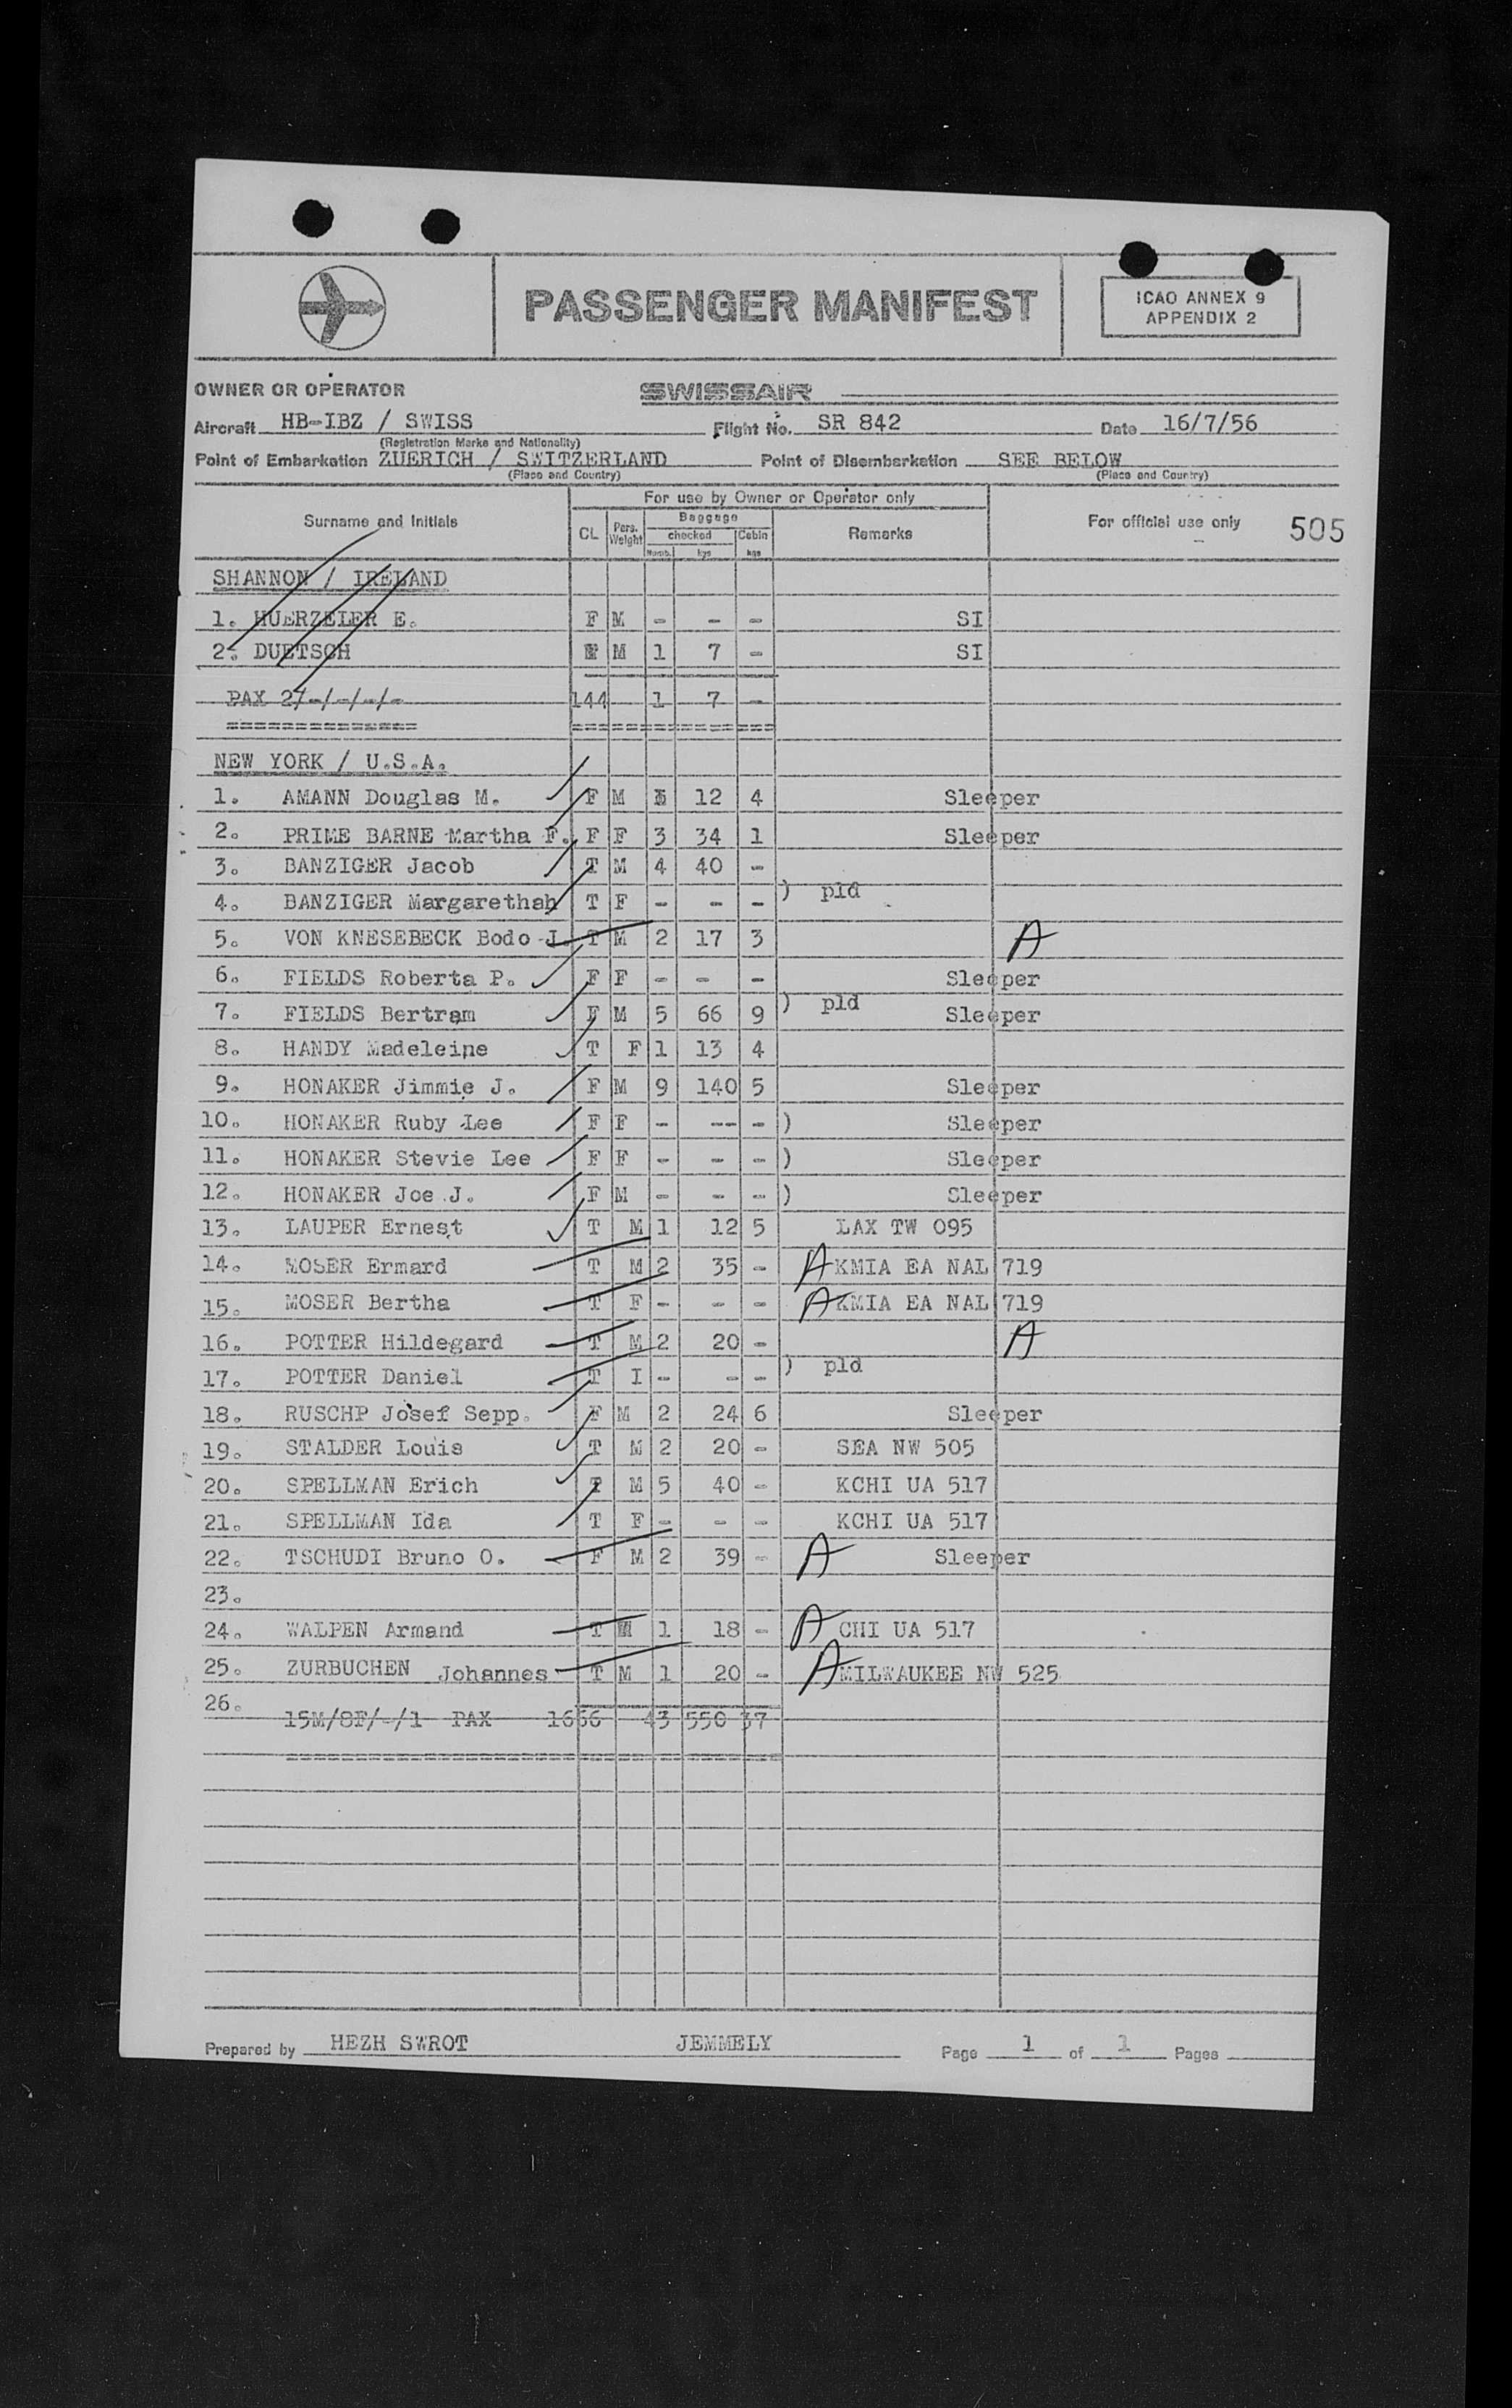 PASSENGER MANIFEST
ICAO ANNEX 9
APPENDIX 2
OWNER OR OPERATOR SWISSAIR
Aircraft HB-IBZ / SWISS Flight No. SR 842 Date 16/7/56
(Registration Marks and Nationality)
Point of Embarkation ZUERICH / SWITZERLAND Point of Disembarkation SEE BELOW
(Place and Country) (Place and Country)
For use by Owner or Operator only
Surname and Initials CL Pers. Weight Baggage checked Numb. kgs Cabin kgs Remarks For official use only 505
SHANNON / IRELAND
1. HUERZELER E. F M - - - SI
2. DUETSCH M 1 7 - SI
PAX 27-/-/-/- 144 1 7 -
NEW YORK / U.S.A.
1. AMANN Douglas M. F M 12 4 Sleeper
2. PRIME BARNE Martha F. F F 3 34 1 Sleeper
3. BANZIGER Jacob T M 4 40 -
4. BANZIGER Margarethah T F - - - ) pld
5. VON KNESEBECK Bodo J. T M 2 17 3 A
6. FIELDS Roberta P. F F - - - Sleeper
7. FIELDS Bertram F M 5 66 9 ) pld Sleeper
8. HANDY Madeleine T F 1 13 4
9. HONAKER Jimmie J. F M 9 140 5 Sleeper
10. HONAKER Ruby Lee F F - -- - ) Sleeper
11. HONAKER Stevie Lee F F - - - ) Sleeper
12. HONAKER Joe J. F M - - - ) Sleeper
13. LAUPER Ernest T M 1 12 5 LAX TW 095
14. MOSER Ermard T M 2 35 - A KMIA EA NAL 719
15. MOSER Bertha T F - - - A KMIA EA NAL 719
16. POTTER Hildegard T M 2 20 - A
17. POTTER Daniel T I - - - ) pld
18. RUSCHP Josef Sepp. F M 2 24 6 Sleeper
19. STALDER Louis T M 2 20 - SEA NW 505
20. SPELLMAN Erich T M 5 40 - KCHI UA 517
21. SPELLMAN Ida T F - - - KCHI UA 517
22. TSCHUDI Bruno O. F M 2 39 - A Sleeper
23.
24. WALPEN Armand T M 1 18 - A CHI UA 517
25. ZURBUCHEN Johannes T M 1 20 - A MILWAUKEE NW 525
26.
15M/8F/-/1 PAX 1656 43 550 37
Prepared by HEZH SWROT JEMMELY Page 1 of 1 Pages